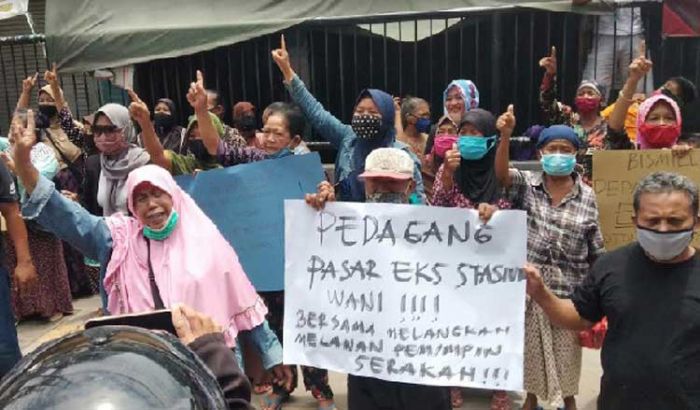 PEDAGANG
PASAR EKS STASIUN
WANI !!!!
BERSAMA MELANGKAH
MELAWAN PEMIMPIN
SERAKAH!!!